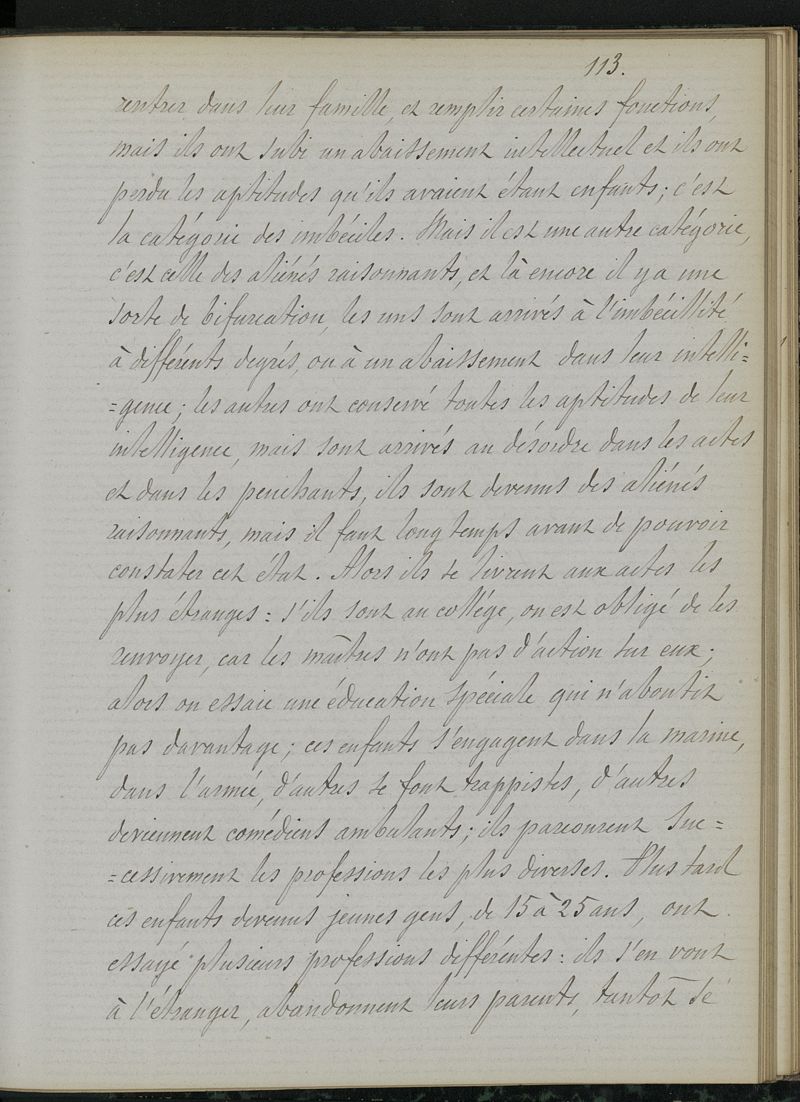 113.
rentrer dans leur famille, et remplir certaines fonctions,
mais ils ont subi un abaissement intellectuel et ils ont
perdu les aptitudes qu'ils avaient étant enfants ; c'est
la catégorie des imbéciles. Mais il est une autre catégorie,
c'est celle des aliénés raisonnants, et là encore il y a une
sorte de bifurcation, les uns sont arrivés à l'imbécillité
à différents degrés, ou à un abaissement dans leur intelli=
=gence ; les autres ont conservé toutes les aptitudes de leur
intelligence, mais sont arrivés au désordre dans les actes
et dans les penchants, ils sont devenus des aliénés
raisonnants, mais il faut longtemps avant de pouvoir
constater cet état. Alors ils se livrent aux actes les
plus étranges : s'ils sont au collége, on est obligé de les
renvoyer, car les maîtres n'ont pas d'action sur eux ;
alors on essaie une éducation spéciale qui n'aboutit
pas davantage ; ces enfants s'engagent dans la marine,
dans l'armée, d'autres se font trappistes, d'autres
deviennent comédiens ambulants ; ils parcourent suc=
=cessivement les professions les plus diverses. Plus tard
ces enfants devenus jeunes gens, de 15 à 25 ans, ont
essayé plusieurs professions différentes : ils s'en vont
à l'étranger, abandonnent leurs parents, tantôt se